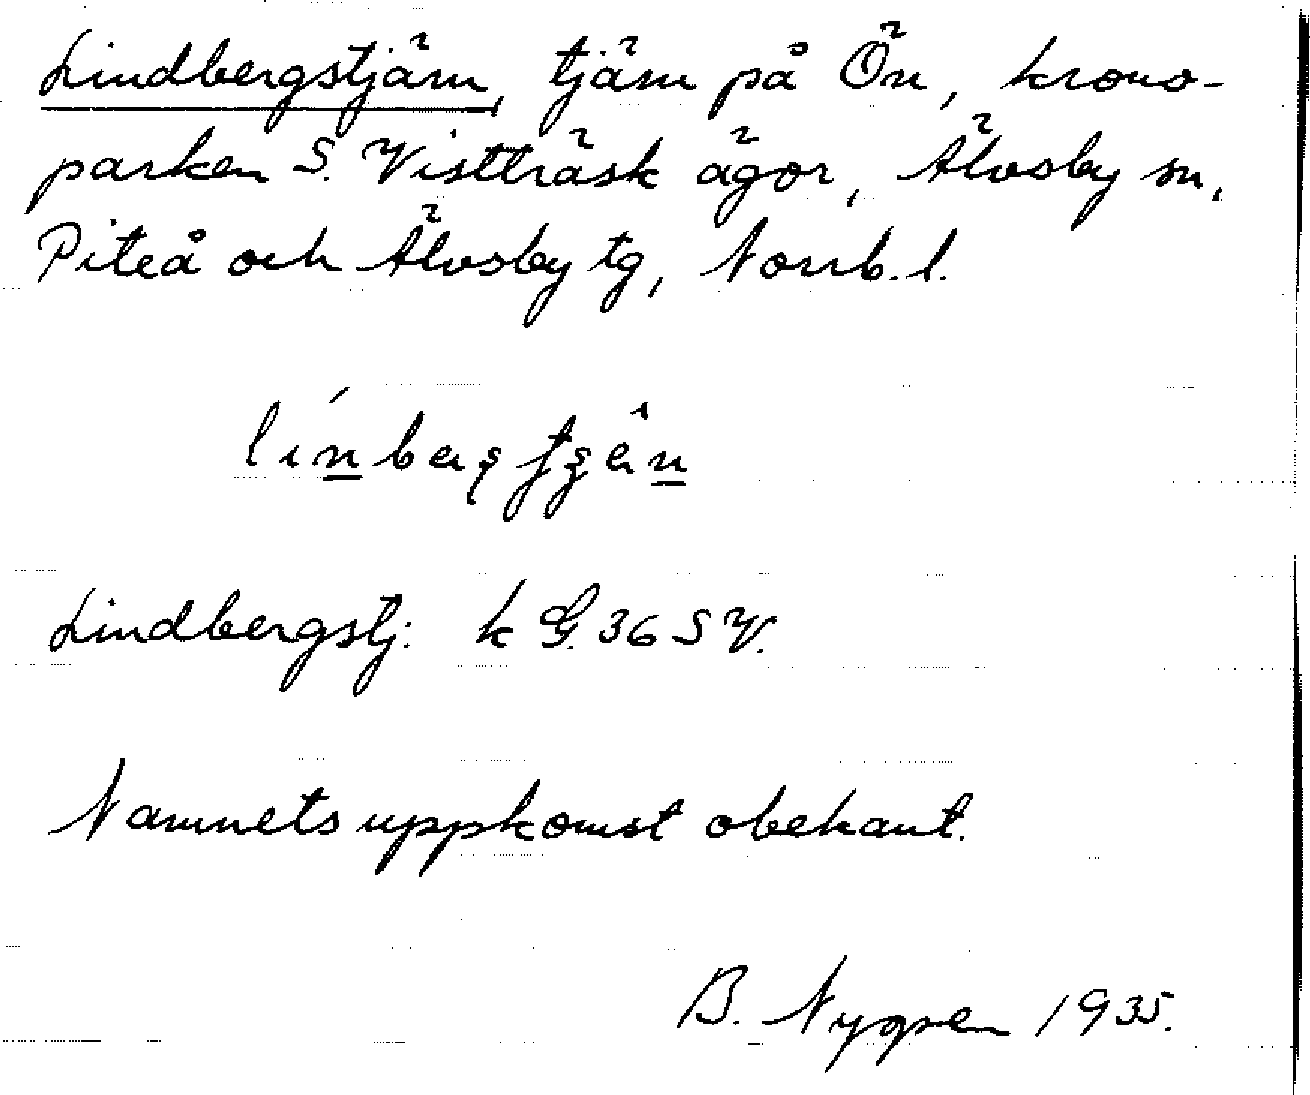 Lindbergstjärn, tjärn på Ön, krono-
parken S. Vistträsk ägor, Älvsby sn,
Piteå och Älvsby tg, Norrb. l.
Lindbergstj: k G. 36 S V.
Namnets uppkomst obekant.
B. Nygren 1935.